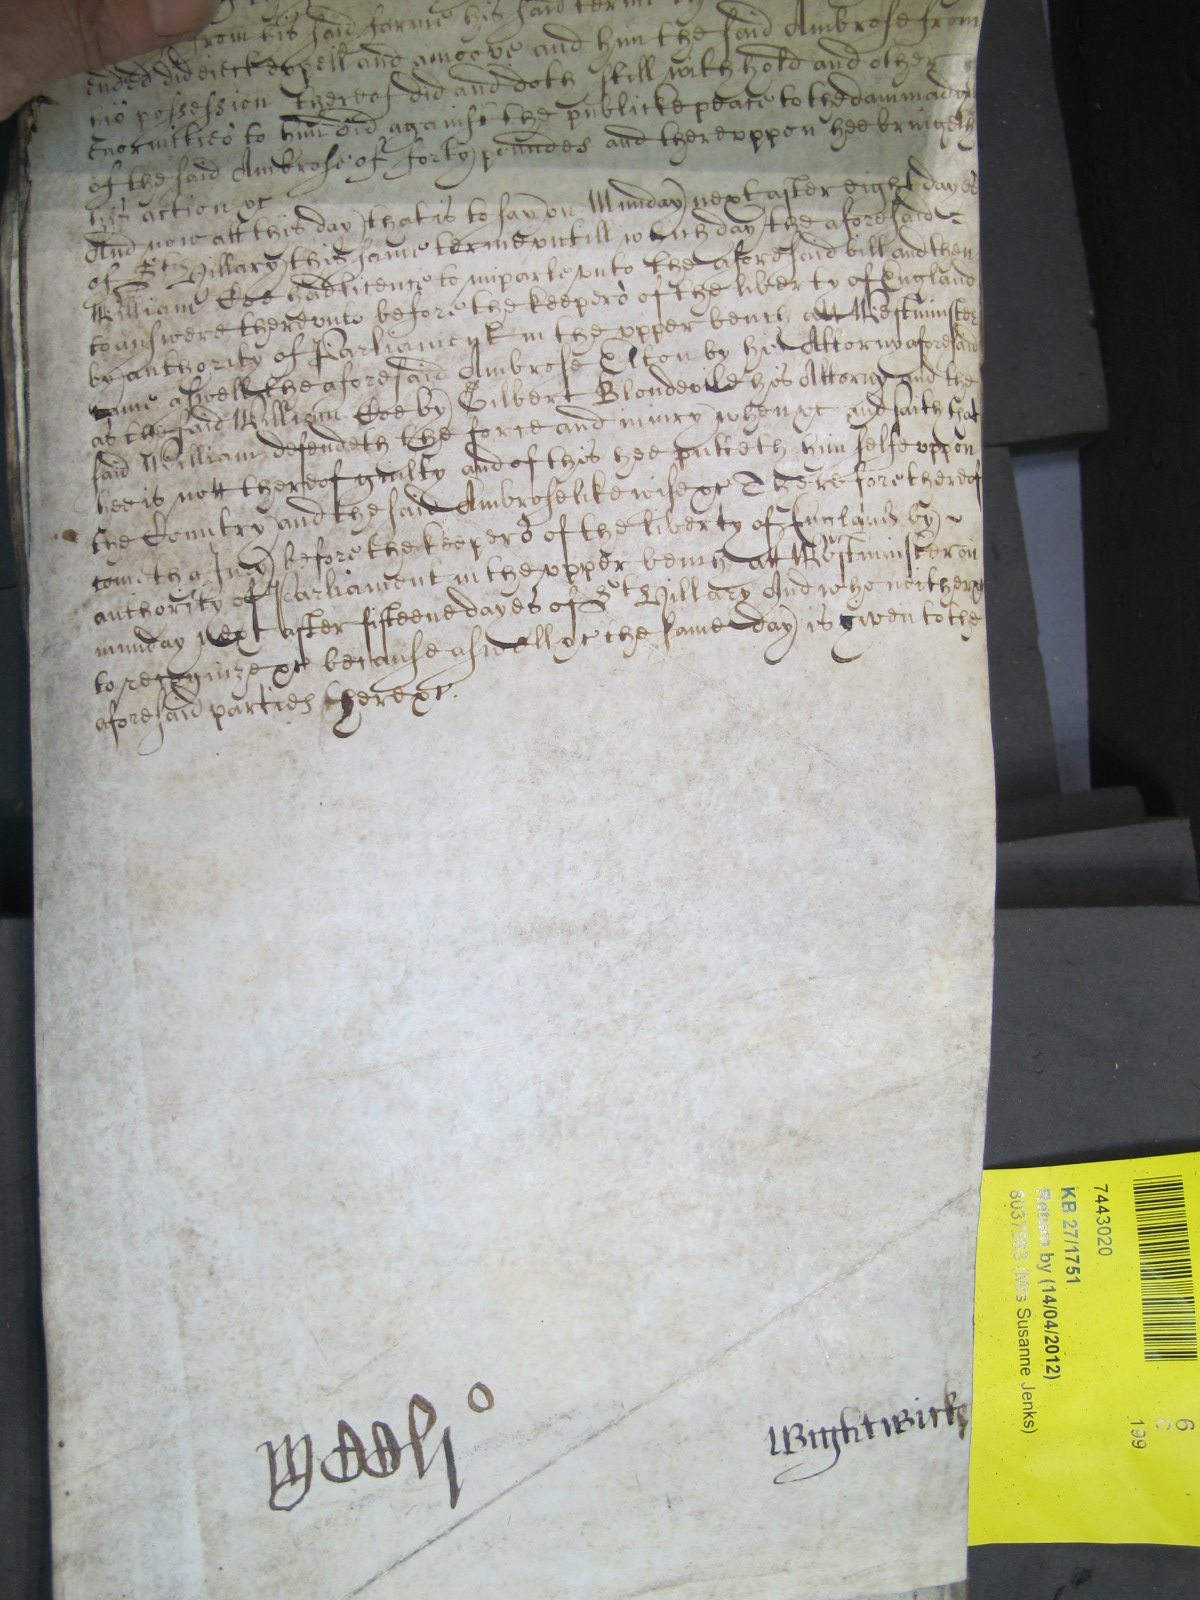 from his said farme his said terme
ended did eiect expell and amoove and him the said Ambrose from
his possession thereof did and doth still with hold and other
enormities to him did against the publicke peace to the dammadge
of the said Ambrose of forty poundes and thereuppon hee bringeth
his action &c
And now att this day that is to say on Munday next after eight dayes
of St Hillary this same terme untill which day the aforesaid
William Coe had licence to imparle unto the aforesaid bill and then
to answere thereunto before the keepers of the liberty of England
by authority of Parliament in the upper bench att Westminster
came aswell the aforesaid Ambrose Elton by his Attorny aforesaid
as the said William Coe by Gilbert Blondevile his Attorny and the
said William defendeth the force and iniury when &c and saith that
hee is nott thereof guilty and of this hee putteth him selfe uppon
the Country and the said Ambrose likewise &c Therefore thereof
cometh a Jury before the keepers of the liberty of England by
authority of Parliament in the upper bench att Westminster on
munday next after fifteene dayes of St Hillary And who neither
to recognize &c because aswell &c the same day is given to the
aforesaid parties there &c.
Wightwick
7443020
KB 27/1751
Return by (14/04/2012)
(Mrs Susanne Jenks)
6
C
199